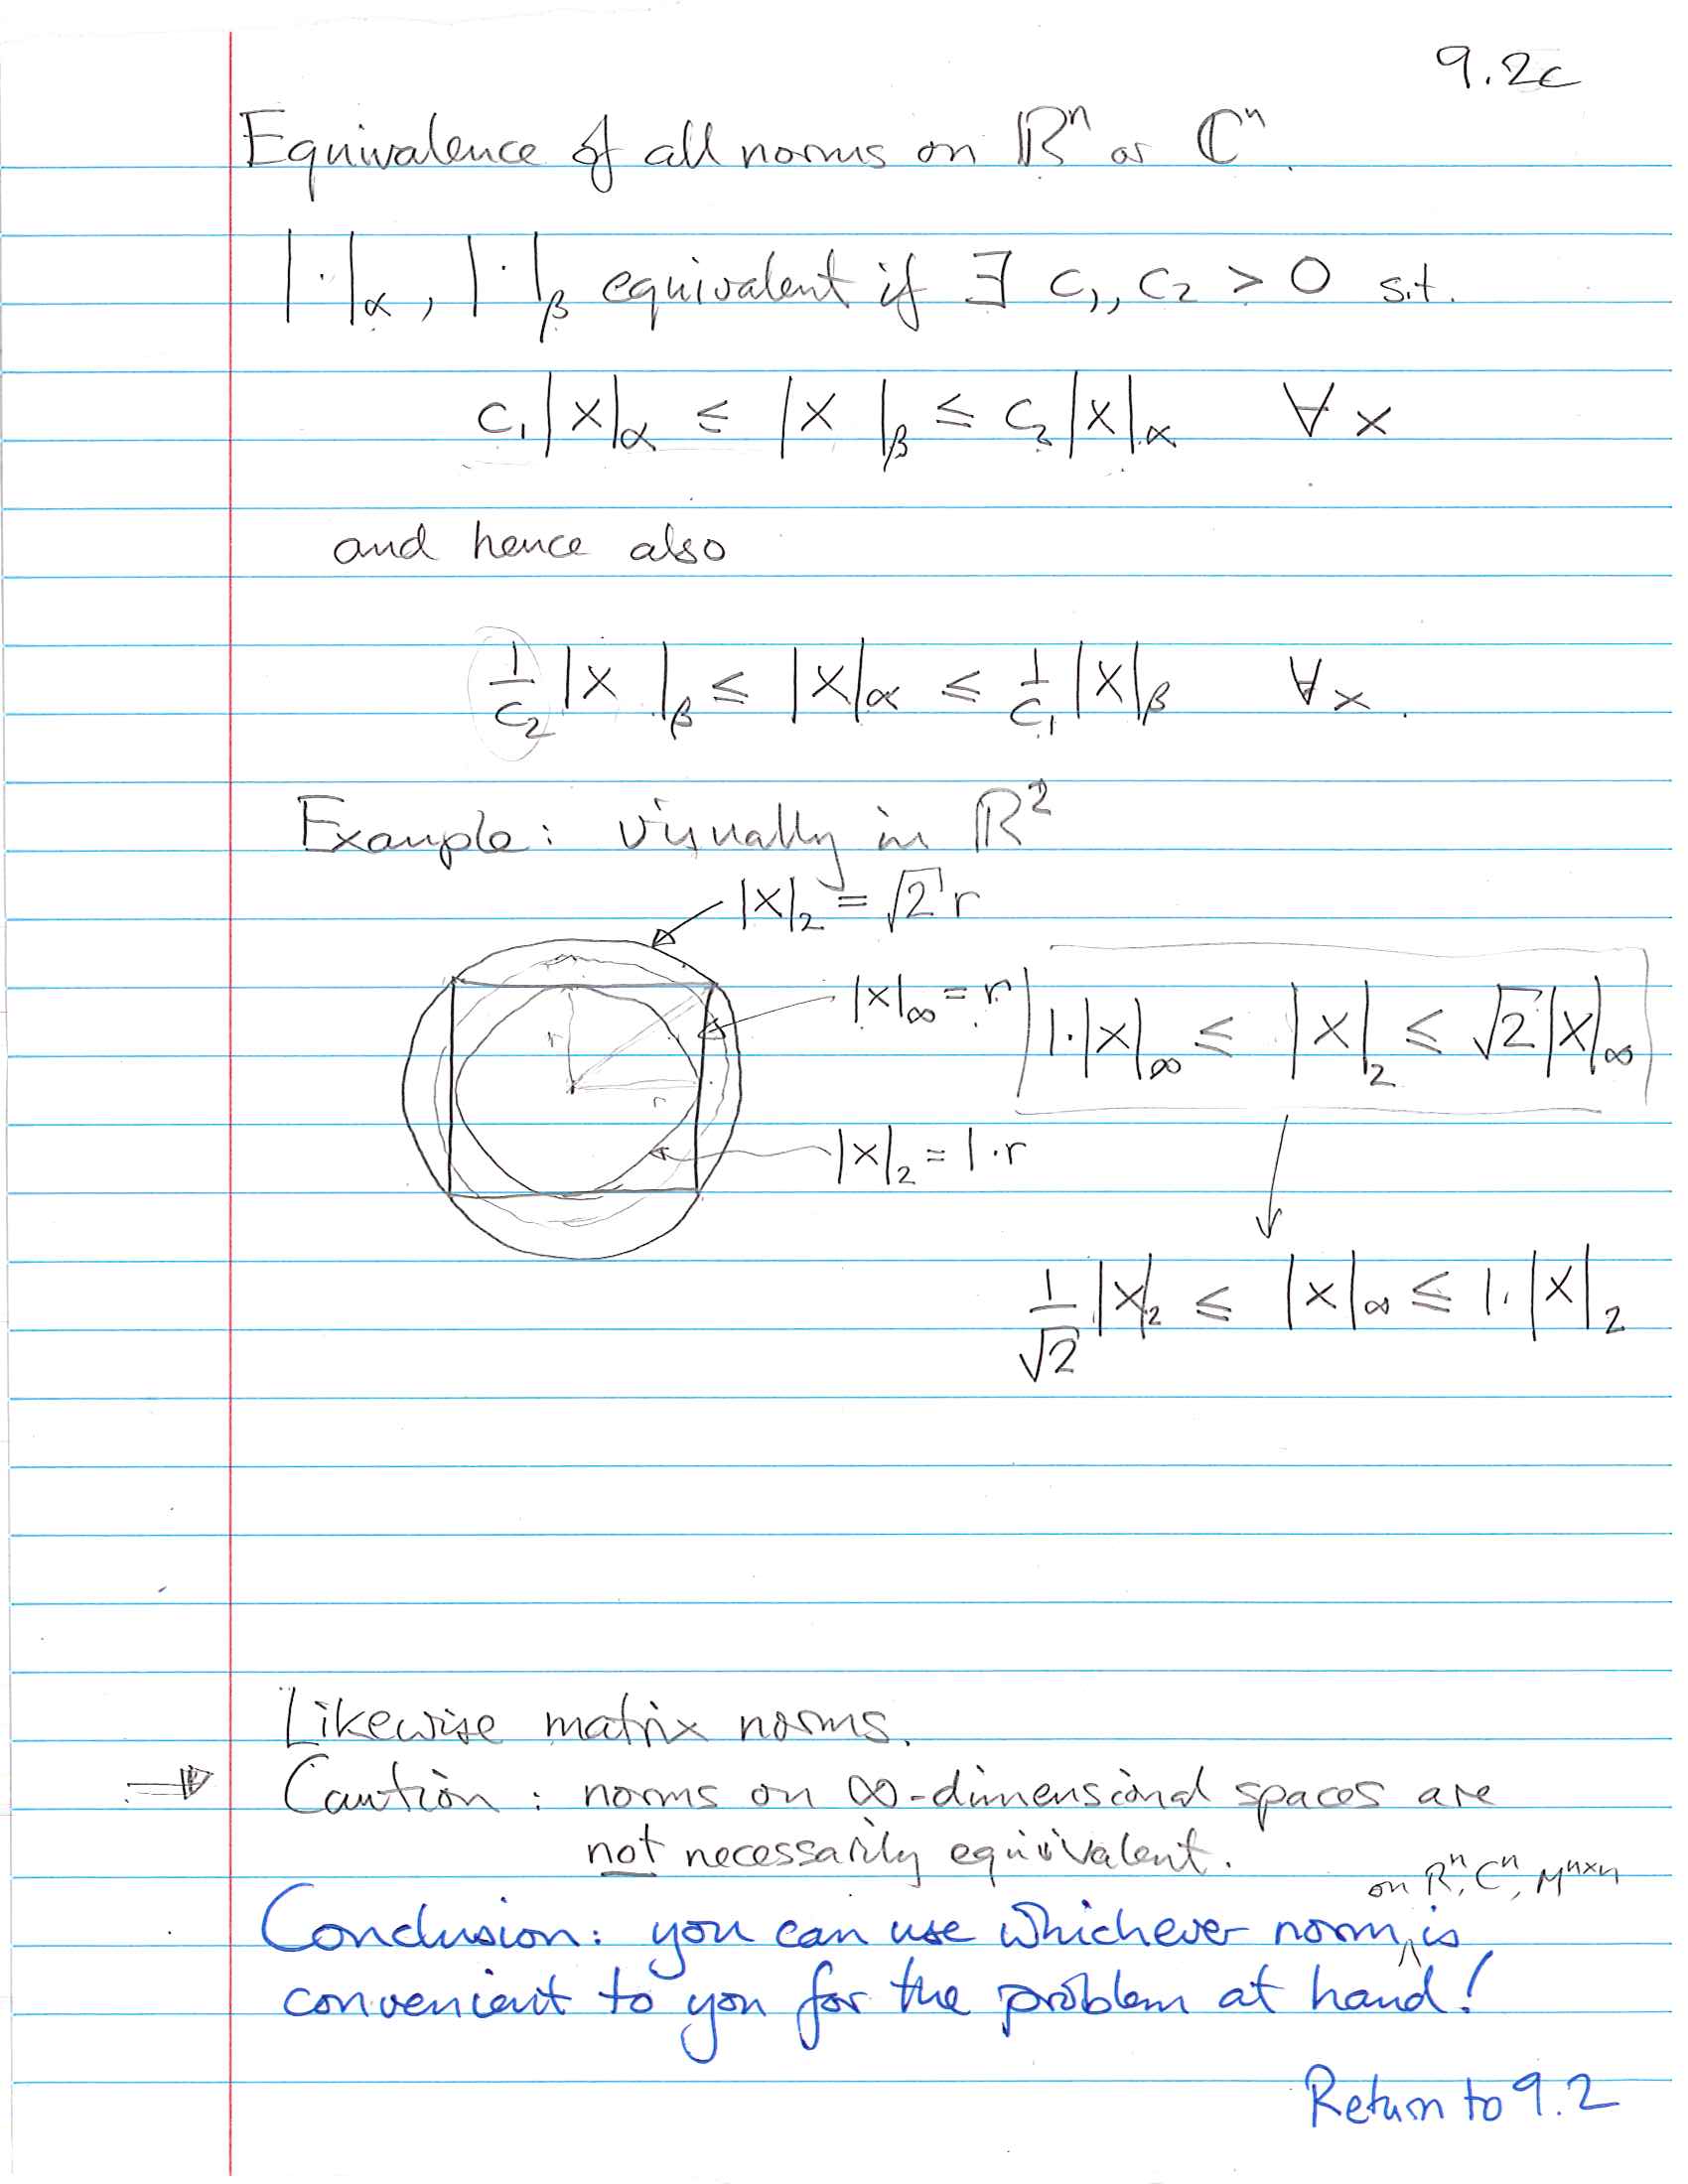 9.2c
Equivalence of all norms on ℝⁿ or ℂⁿ.
|·|α, |·|β equivalent if ∃ c₁, c₂ > 0 s.t.
c₁|x|α ≤ |x|β ≤ c₂|x|α ∀ x
and hence also
1/c₂ |x|β ≤ |x|α ≤ 1/c₁ |x|β ∀ x.
Example: visually in ℝ²
|x|₂ = √2 r
|x|∞ = r
1·|x|∞ ≤ |x|₂ ≤ √2 |x|∞
r
r
|x|₂ = 1·r
1/√2 |x|₂ ≤ |x|∞ ≤ 1·|x|₂
Likewise matrix norms.
⇒ Caution: norms on ∞-dimensional spaces are
not necessarily equivalent.
on ℝⁿ, ℂⁿ, Mⁿˣⁿ
Conclusion: you can use whichever norm ∧ is
convenient to you for the problem at hand!
Return to 9.2